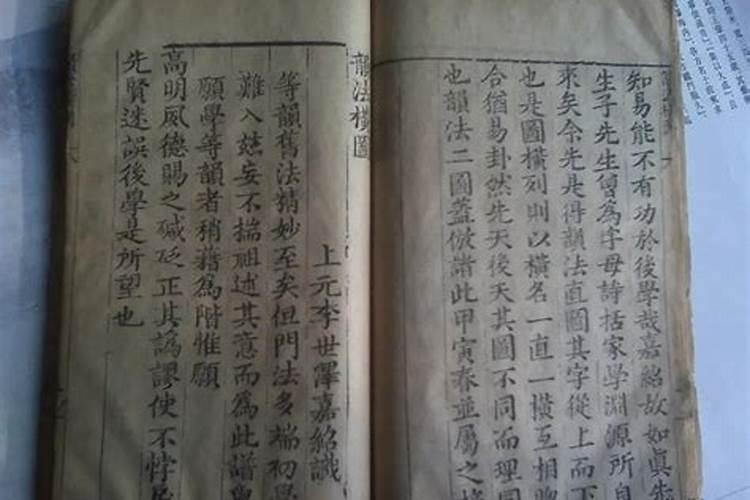 知易能不有功於後學哉嘉紹故如眞先
生子先生曾為字母詩括家學淵源所自
來矣余先是得韻法直圖其字從上而下
也是圖橫列則以橫名一直一橫互相
合猶易卦然先天後天其圖不同而理
也韻法二圖蓋倣諸此甲寅春並屬之
韻法橫圖
上元李世澤嘉紹識
等韻舊法精妙至矣但門法多端初學
難入玆妄不揣祖述其意而為此譜
願學等韻者稍藉為階惟願
高明威德賜之砭正其譌謬使不悖
先賢迷誤後學是所望也